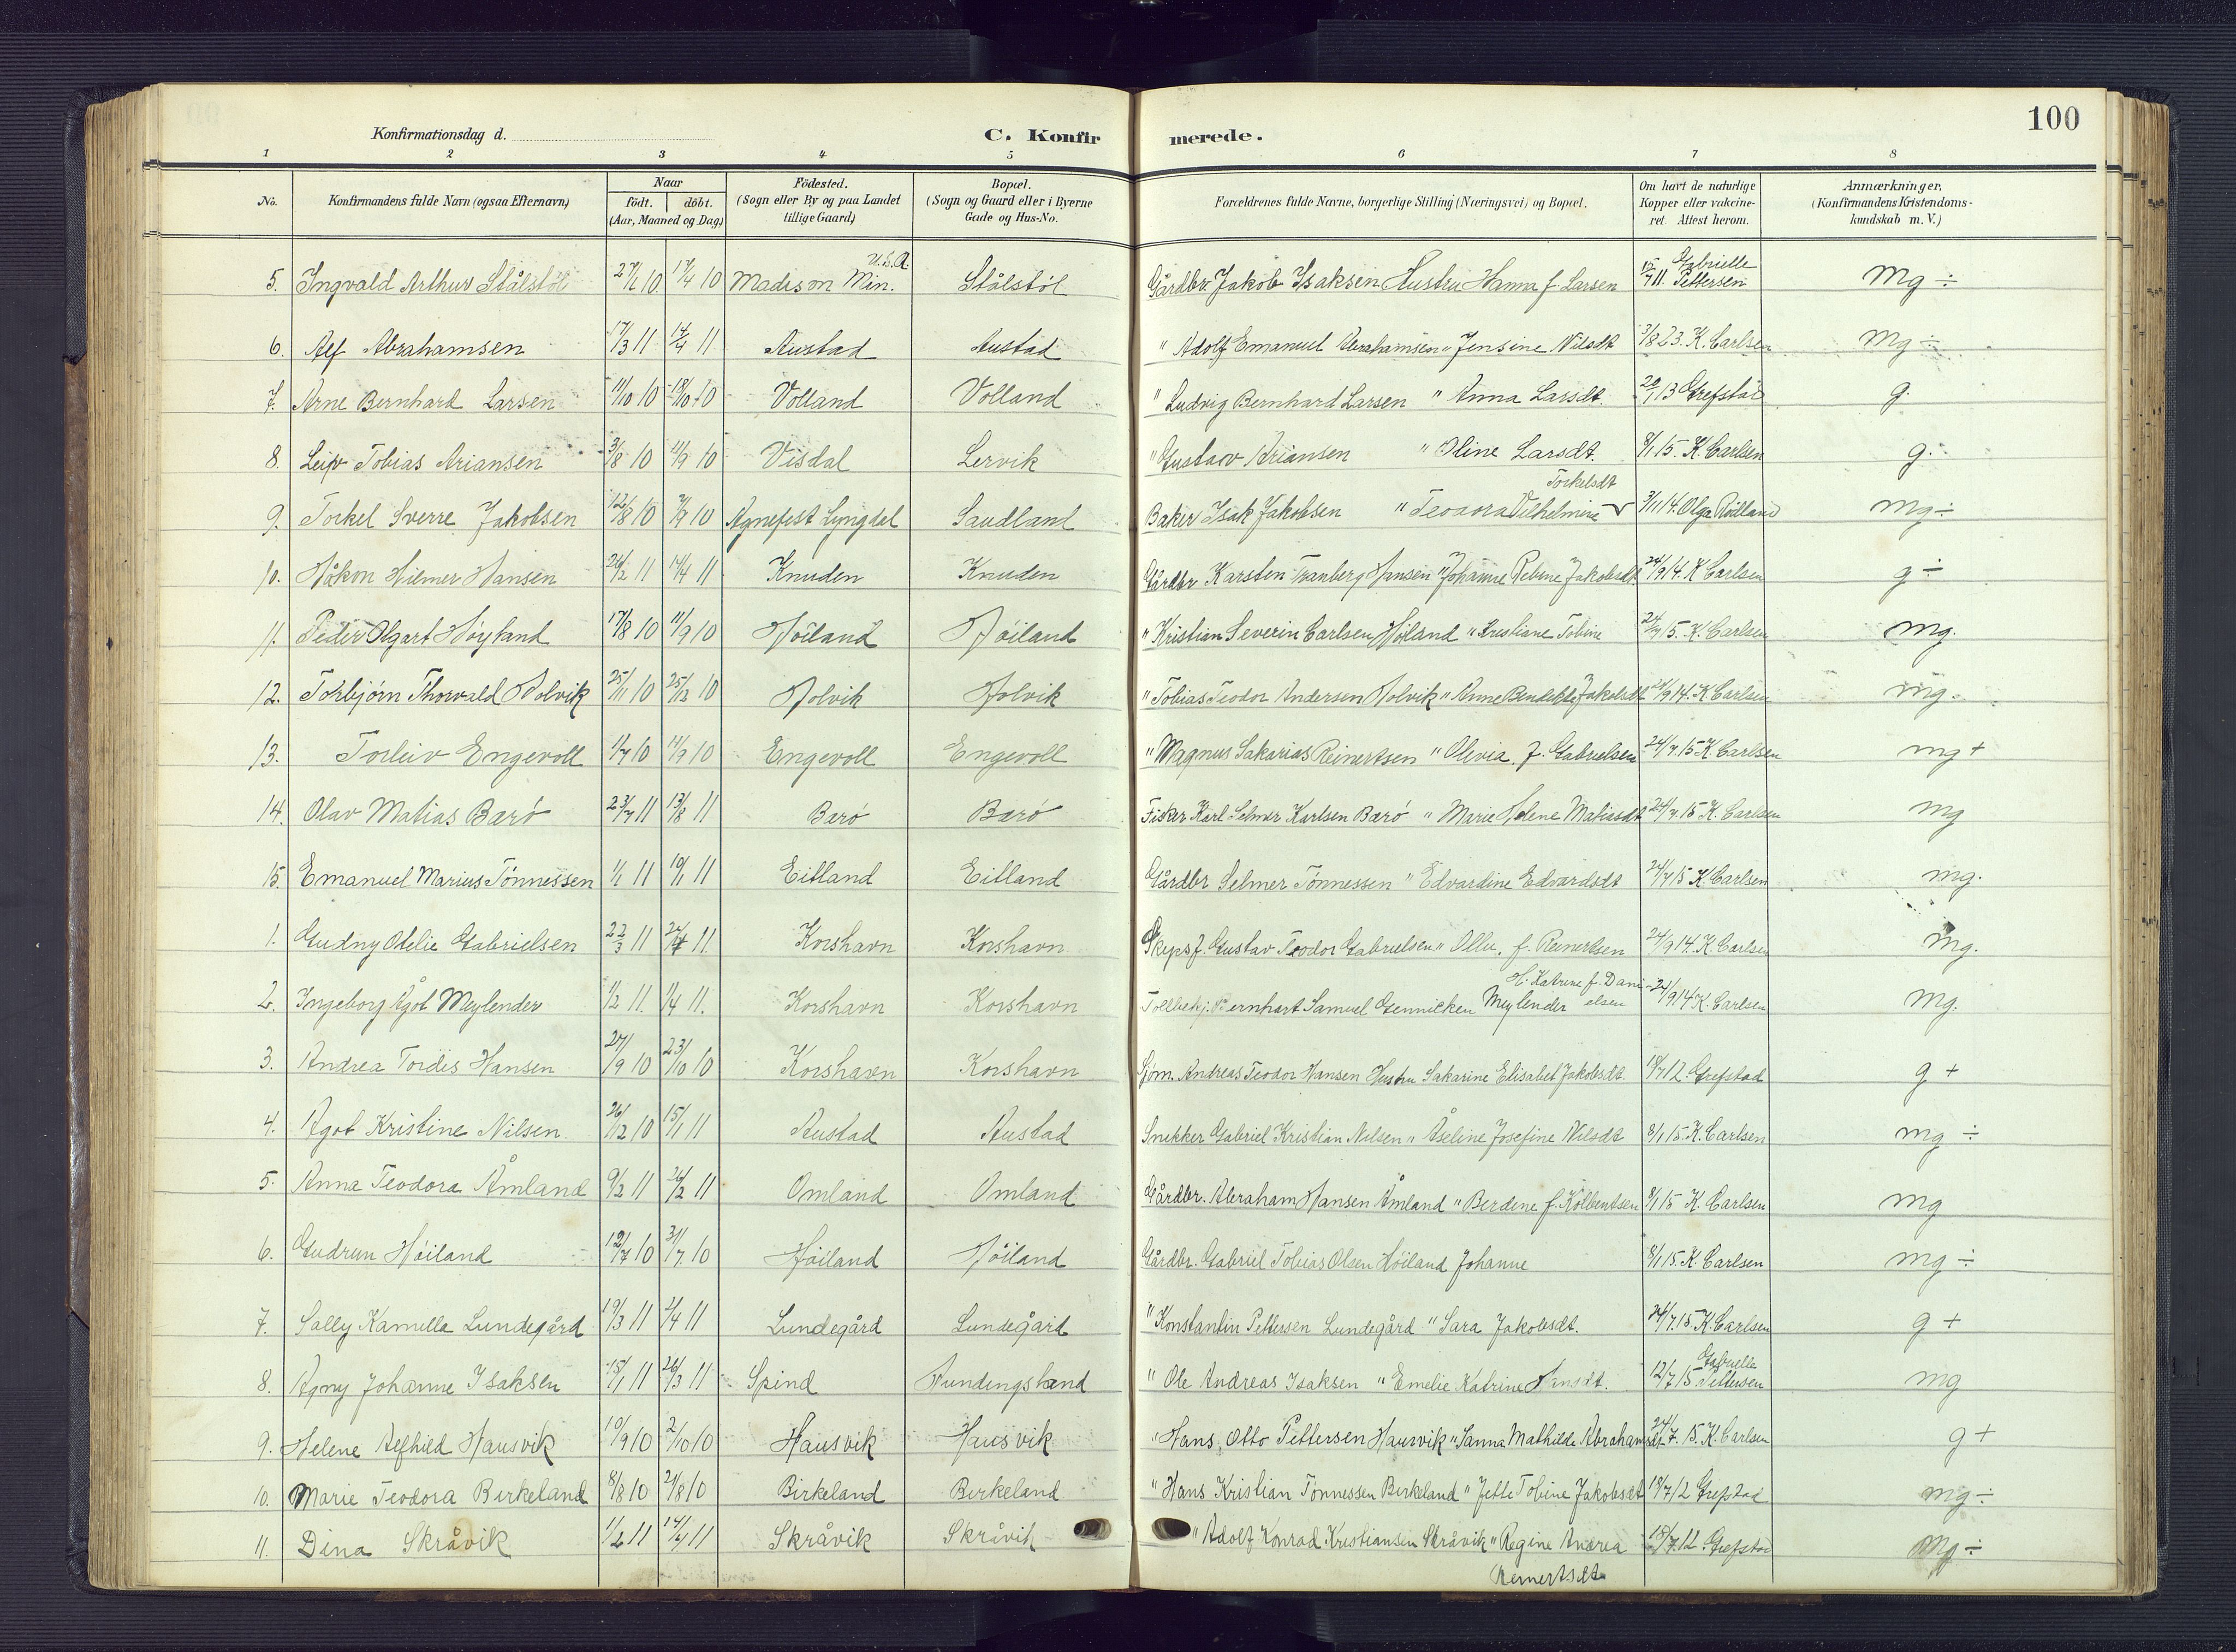 100
Konfirmationsdag d.
C. Konfirmerede.
1 2 3 4 5 6 7 8
No. Konfirmandens fulde Navn (ogsaa Efternavn) Naar født. døbt. (Aar, Maaned og Dag) Fødested. (Sogn eller By og paa Landet tillige Gaard) Bopæl. (Sogn og Gaard eller i Byerne Gade og Hus-No. Forældrenes fulde Navne, borgerlige Stilling (Næringsvei) og Bopæl. Om havt de naturlige Kopper eller vakcineret. Attest herom. Anmærkninger, (Konfirmandens Kristendomskundskab m. V.)
5. Ingvald Arthur Stålstøl 27/1 10 17/4 10 Madison Min. U.S.A. Stålstøl Gårdbr. Jakob Isaksen Hustru Hanna f. Larsen 15/7 11. Gabrielle Pettersen Mg ÷
6. Alf Abrahamsen 17/3 11 14/4 11 Austad Austad " Adolf Emanuel Abrahamsen " Jensine Nilsdt 3/8 23. K. Carlsen Mg ÷
7. Arne Bernhard Larsen 11/10 10 18/10 10 Volland Volland " Ludvig Bernhard Larsen " Anna Larsdt. 20/1 13 Grefstad g.
8. Leif Tobias Ariansen 3/8 10 11/9 10 Visdal Lervik " Gustav Ariansen " Oline Larsdt. 8/1 15. K. Carlsen g.
9. Torkel Sverre Jakobsen 12/8 10 10 Agnefest Lyngdal Saudland Baker Isak Jakobsen " Teodora Vilhelmine Torkelsdt 3/11 14. Olga Rødland mg ÷
10. Håkon Hilmer Hansen 26/2 11 14/4 11 Knuden Knuden Gårdbr Karsten Tranberg Hansen " Johanne Rebine Jakobsdt 24/9 14. K Carlsen g ÷
11. Peder Olgart Høyland 17/8 10 11/9 10 Høiland Høiland " Kristian Severin Carlsen Høiland " Kristiane Tobine 24/7 15. K. Carlsen mg.
12. Torbjørn Thorvald Holvik 25/11 10 25/12 10 Holvik Holvik " Tobias Teodor Andersen Holvik " Anne Bendikte Jakobsdt 24/9 14. K Carlsen mg.
13. Torleiv Engevoll 1/7 10 11/9 10 Engevoll Engevoll " Magnus Sakarias Reinertsen " Olevia f. Gabrielsen 24/7. 15 K. Carlsen mg +
14. Olav Matias Barø 23/7 11 13/8 11 Barø Barø Fisker Karl Selmer Karlsen Barø " Marie Helene Matiasdt 24/7. 15 K. Carlsen mg
15. Emanuel Marius Tønnessen 1/1 11 11 Eitland Eitland Gårdbr Selmer Tønnessen " Edvardine Edvardsdt 24/7 15 K. Carlsen mg.
1. Gudny Otelie Gabrielsen 22/3 11 11. Korshavn Korshavn Skipsf. Gustav Teodor Gabrielsen " f. Reinertsen 24/9 14. K. Carlsen mg.
2. Ingeborg Ågot Meylender 1/2 11. 1/4 11. Korshavn Korshavn Bernhart Samuel Meylender H. Katrine f. Danielsen 24/9 14 K. Carlsen mg.
3. Andrea Tordis Hansen 27/9 10 23/10 10 Korshavn Korshavn Sjøm. Andreas Teodor Hansen Hustru Sakarine Elisabet Jakobsdt. 18/7 12. Grefstad g +
4. Ågot Kristine Nilsen 26/12 10 15/1 11 Austad Austad Snekker Gabriel Kristian Nilsen " Åseline Josefine Nilsdt 8/1 15. K. Carlsen mg ÷
5. Anna Teodora Åmland 9/2 11 26/2 11 Omland Omland Gårdbr. Abraham Hansen Åmland " Berdene f. Kolbentsen 8/1 15 K. Carlsen mg
6. Gudrun Høiland 12/7 10 31/7 10 Høiland Høiland Gårdbr. Gabriel Tobias Olsen Høiland Johanne 8/1 15. K. Carlsen mg ÷
7. Sally Kamilla Lundegård 19/3 11 /4 11 Lundegård Lundegård " Konstantin Pettersen Lundegård " Sara Jakobsdt. 24/7. 15 K. Carlsen g +
8. Agny Johanne Isaksen 15/1 11 26/3 11 Spind " Ole Andreas Isaksen " Emelie Katrine Hansdt. 12/7 15 Gabrielle Pettersen mg
9. Helene Alfhild Hausvik 10/9 10 2/10 10 Hausvik Hausvik " Hans Otto Pettersen Hausvik " Sanna Mathilde Abrahamsdt. 24/7. 15. K. Carlsen g +
10. Marie Teodora Birkeland 8/8 10 21/8 10 Birkeland Birkeland " Hans Kristian Tønnessen Birkeland " Jette Tobine Jakobsdt 18/7 12 Grefstad mg ÷
11. Dina Skråvik 1/2 11 14/4 11 Skråvik Skråvik " Adolf Konrad Kristiansen Skråvik " Regine Andrea Reinertsdt. 18/7. 12. Grefstad Mg ÷